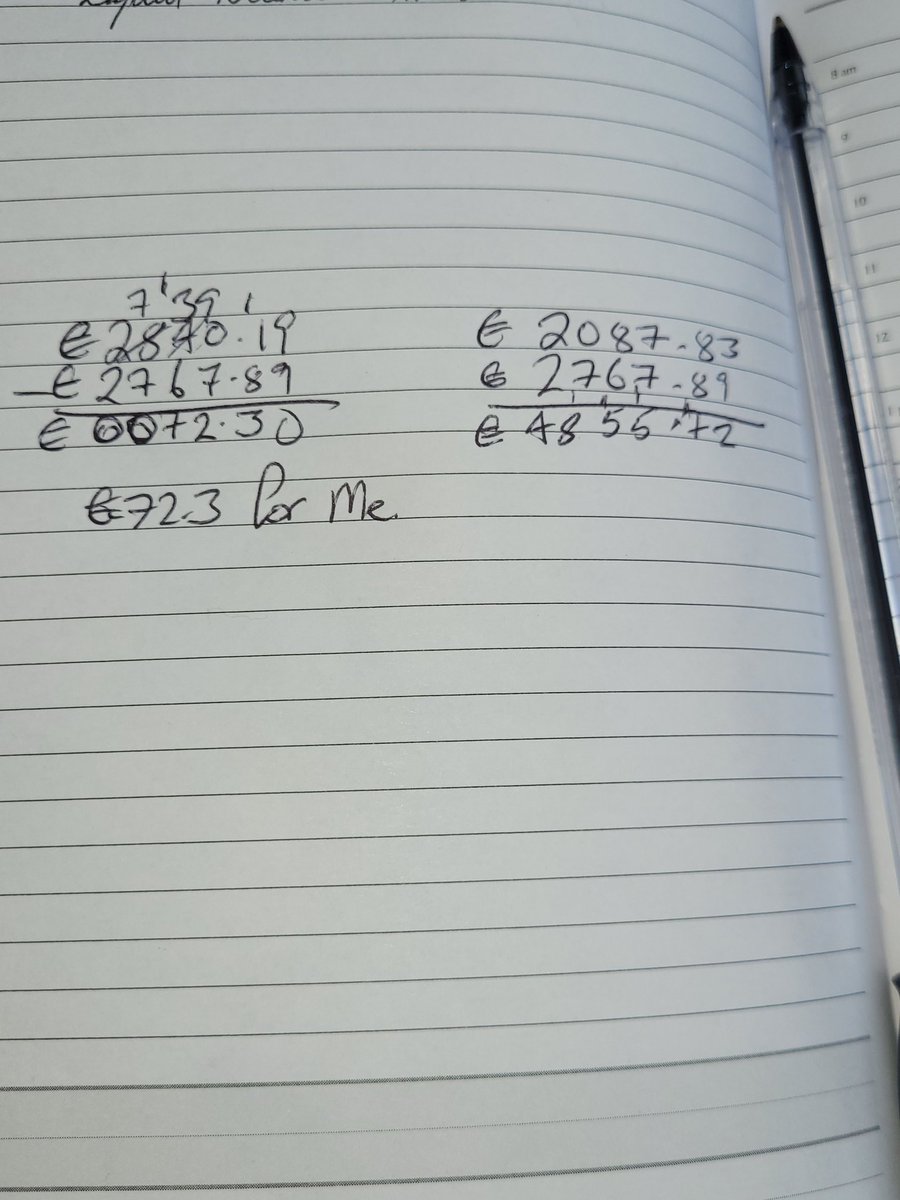 7 1 3 9 1
€ 2840.19
- € 2767.89
€ 0072.30
€72.3 for Me.
€ 2087.83
€ 2767.89
€ 4855.72
8 am
9
10
11
12